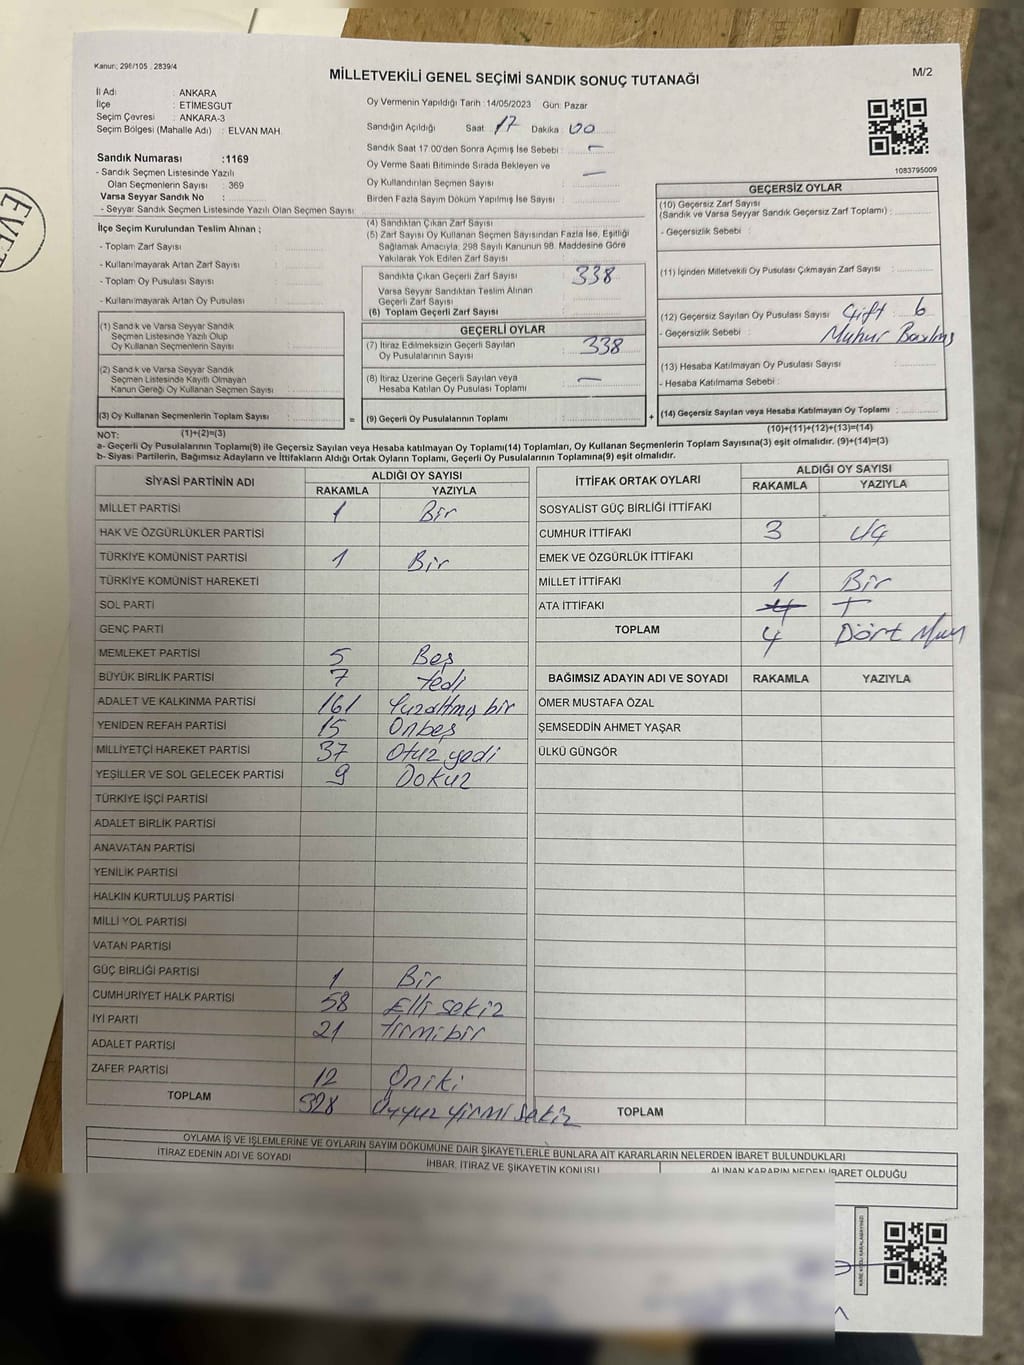 Kanun: 298/105 , 2839/4
MİLLETVEKİLİ GENEL SEÇİMİ SANDIK SONUÇ TUTANAĞI
M/2
İl Adı : ANKARA
İlçe : ETİMESGUT
Seçim Çevresi : ANKARA-3
Seçim Bölgesi (Mahalle Adı) : ELVAN MAH.
Sandık Numarası :1169
- Sandık Seçmen Listesinde Yazılı
Olan Seçmenlerin Sayısı : 369
Varsa Seyyar Sandık No :
- Seyyar Sandık Seçmen Listesinde Yazılı Olan Seçmen Sayısı
Oy Vermenin Yapıldığı Tarih : 14/05/2023 Gün: Pazar
Sandığın Açıldığı Saat : 17 Dakika : 00
Sandık Saat 17:00'den Sonra Açımış İse Sebebi : -
Oy Verme Saati Bitiminde Sırada Bekleyen ve
Oy Kullandırılan Seçmen Sayısı : -
Birden Fazla Sayım Döküm Yapılmış İse Sayısı :
1083795009
İlçe Seçim Kurulundan Teslim Alınan ;
- Toplam Zarf Sayısı :
- Kullanılmayarak Artan Zarf Sayısı :
- Toplam Oy Pusulası Sayısı :
- Kullanılmayarak Artan Oy Pusulası :
(1) Sandık ve Varsa Seyyar Sandık
Seçmen Listesinde Yazılı Olup
Oy Kullanan Seçmenlerin Sayısı :
(2) Sandık ve Varsa Seyyar Sandık
Seçmen Listesinde Kayıtlı Olmayan
Kanun Gereği Oy Kullanan Seçmen Sayısı :
(3) Oy Kullanan Seçmenlerin Toplam Sayısı :
(1)+(2)=(3)
(4) Sandıktan Çıkan Zarf Sayısı :
(5) Zarf Sayısı Oy Kullanan Seçmen Sayısından Fazla İse, Eşitliği
Sağlamak Amacıyla, 298 Sayılı Kanunun 98. Maddesine Göre
Yakılarak Yok Edilen Zarf Sayısı :
Sandıkta Çıkan Geçerli Zarf Sayısı : 338
Varsa Seyyar Sandıktan Teslim Alınan
Geçerli Zarf Sayısı :
(6) Toplam Geçerli Zarf Sayısı :
GEÇERLİ OYLAR
(7) İtiraz Edilmeksizin Geçerli Sayılan
Oy Pusulalarının Sayısı : 338
(8) İtiraz Üzerine Geçerli Sayılan veya
Hesaba Katılan Oy Pusulası Toplamı : -
= (9) Geçerli Oy Pusulalarının Toplamı :
GEÇERSİZ OYLAR
(10) Geçersiz Zarf Sayısı
(Sandık ve Varsa Seyyar Sandık Geçersiz Zarf Toplamı) :
- Geçersizlik Sebebi :
(11) İçinden Milletvekili Oy Pusulası Çıkmayan Zarf Sayısı :
(12) Geçersiz Sayılan Oy Pusulası Sayısı : Çift 6
- Geçersizlik Sebebi : Muhur Basılmış
(13) Hesaba Katılmayan Oy Pusulası Sayısı :
- Hesaba Katılmama Sebebi :
+ (14) Geçersiz Sayılan veya Hesaba Katılmayan Oy Toplamı :
(10)+(11)+(12)+(13)=(14)
NOT:
a- Geçerli Oy Pusulalarının Toplamı(9) ile Geçersiz Sayılan veya Hesaba katılmayan Oy Toplamı(14) Toplamları, Oy Kullanan Seçmenlerin Toplam Sayısına(3) eşit olmalıdır. (9)+(14)=(3)
b- Siyasi Partilerin, Bağımsız Adayların ve İttifakların Aldığı Ortak Oyların Toplamı, Geçerli Oy Pusulalarının Toplamına(9) eşit olmalıdır.
SİYASİ PARTİNİN ADI ALDIĞI OY SAYISI
RAKAMLA YAZIYLA
MİLLET PARTİSİ 1 Bir
HAK VE ÖZGÜRLÜKLER PARTİSİ
TÜRKİYE KOMÜNİST PARTİSİ 1 Bir
TÜRKİYE KOMÜNİST HAREKETİ
SOL PARTİ
GENÇ PARTİ
MEMLEKET PARTİSİ 5 Beş
BÜYÜK BİRLİK PARTİSİ 7 Yedi
ADALET VE KALKINMA PARTİSİ 161 Yüzaltmış bir
YENİDEN REFAH PARTİSİ 15 Onbeş
MİLLİYETÇİ HAREKET PARTİSİ 37 Otuz yedi
YEŞİLLER VE SOL GELECEK PARTİSİ 9 Dokuz
TÜRKİYE İŞÇİ PARTİSİ
ADALET BİRLİK PARTİSİ
ANAVATAN PARTİSİ
YENİLİK PARTİSİ
HALKIN KURTULUŞ PARTİSİ
MİLLİ YOL PARTİSİ
VATAN PARTİSİ
GÜÇ BİRLİĞİ PARTİSİ 1 Bir
CUMHURİYET HALK PARTİSİ 58 Elli sekiz
İYİ PARTİ 21 Yirmi bir
ADALET PARTİSİ
ZAFER PARTİSİ 12 Oniki
TOPLAM 328 Üçyüz yirmi sekiz
İTTİFAK ORTAK OYLARI ALDIĞI OY SAYISI
RAKAMLA YAZIYLA
SOSYALİST GÜÇ BİRLİĞİ İTTİFAKI
CUMHUR İTTİFAKI 3 Üç
EMEK VE ÖZGÜRLÜK İTTİFAKI
MİLLET İTTİFAKI 1 Bir
ATA İTTİFAKI
TOPLAM 4 Dört
BAĞIMSIZ ADAYIN ADI VE SOYADI RAKAMLA YAZIYLA
ÖMER MUSTAFA ÖZAL
ŞEMSEDDİN AHMET YAŞAR
ÜLKÜ GÜNGÖR
TOPLAM
OYLAMA İŞ VE İŞLEMLERİNE VE OYLARIN SAYIM DÖKÜMÜNE DAİR ŞİKAYETLERLE BUNLARA AİT KARARLARIN NELERDEN İBARET BULUNDUKLARI
İTİRAZ EDENİN ADI VE SOYADI İHBAR, İTİRAZ VE ŞİKAYETİN KONUSU ALINAN KARARIN NEDEN İBARET OLDUĞU